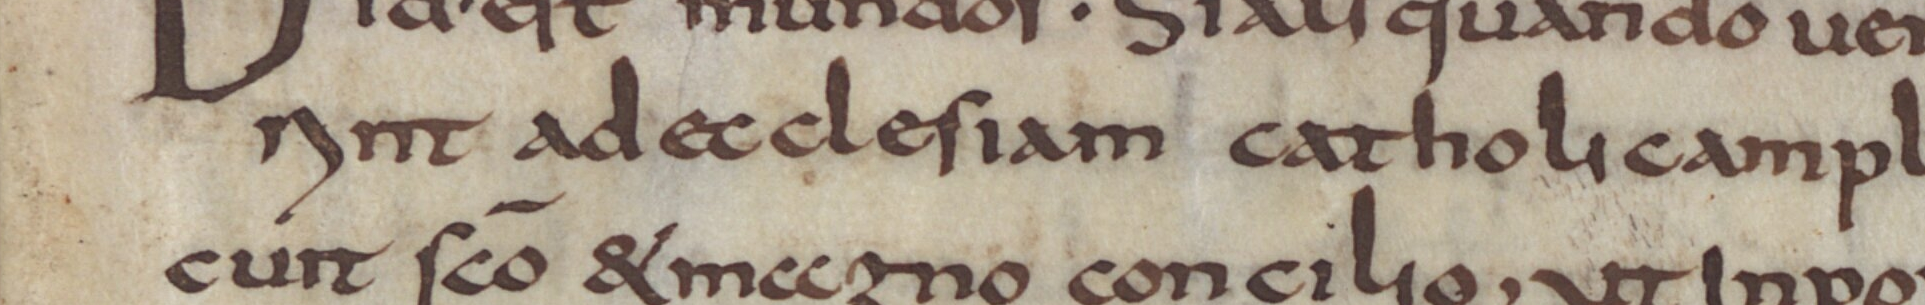 id·est mundos· Si aliquando uen
Rint ad ecclesiam catholicam pl
cuit sc̄o & magno concilio, ut Inpo